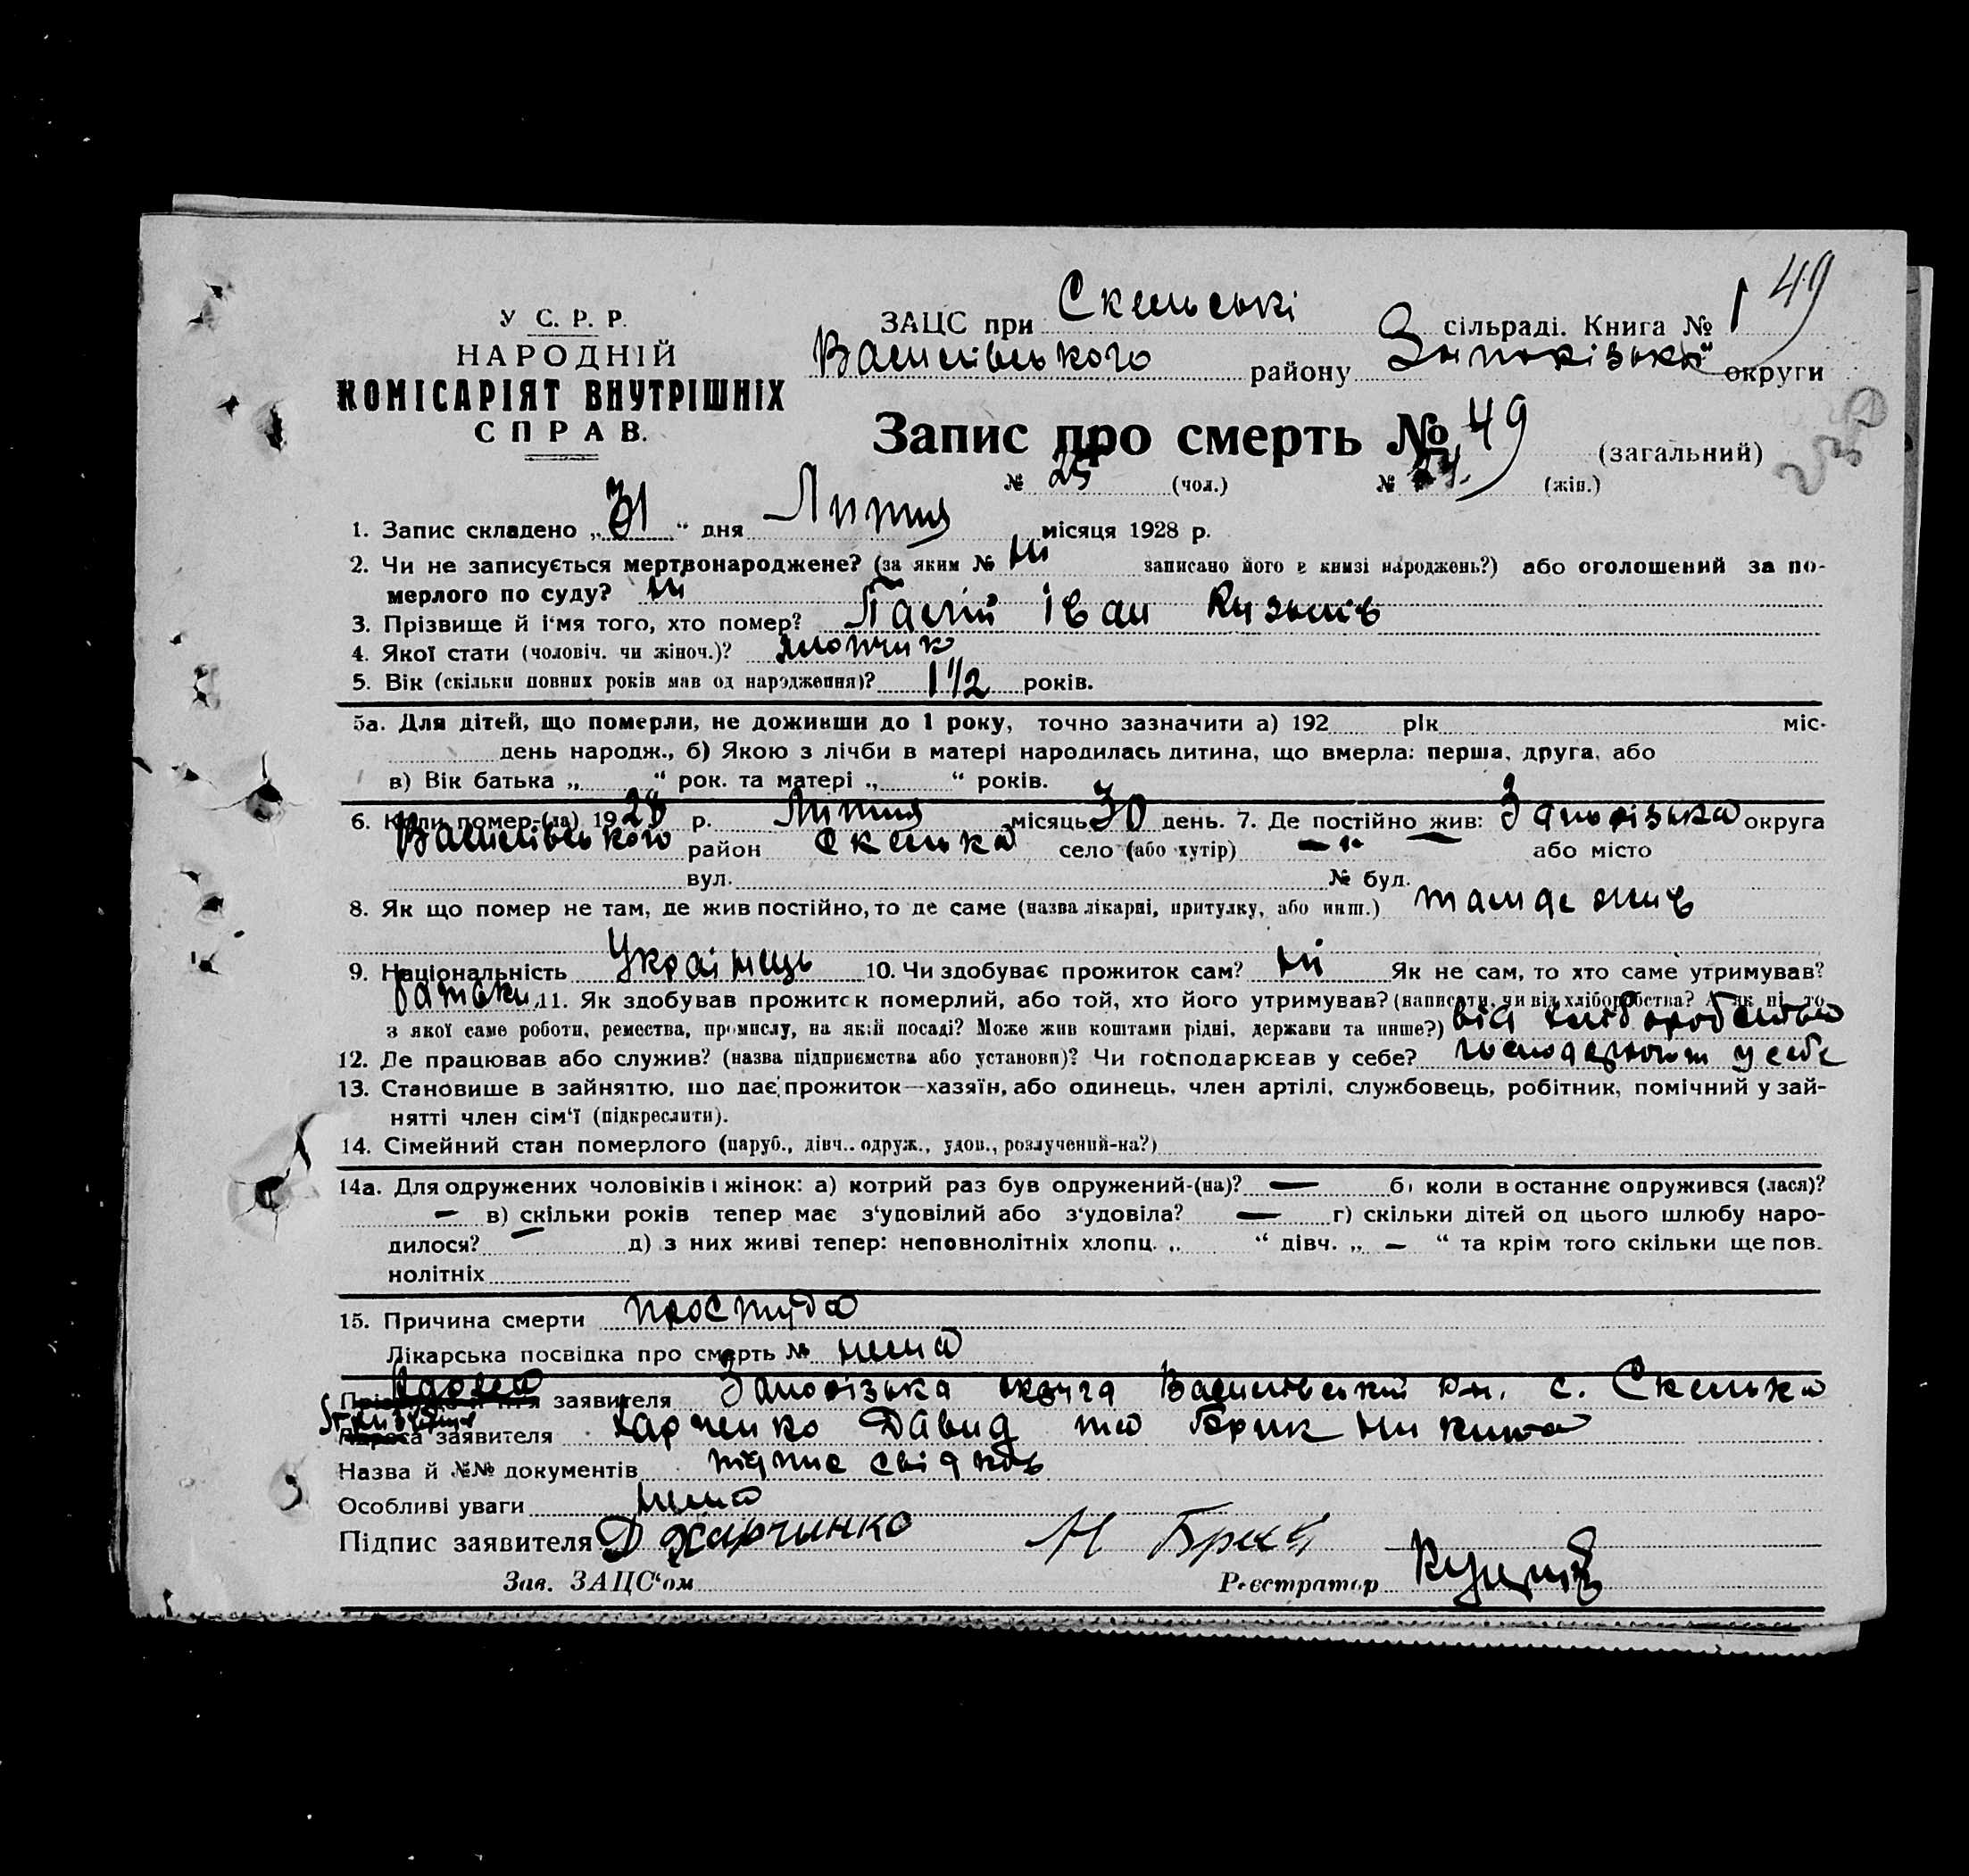 49
У С. Р. Р.
НАРОДНІЙ
КОМІСАРІЯТ ВНУТРІШНІХ
СПРАВ.
ЗАЦС при Скельські сільраді. Книга № 1
Василівського району Запорізька округи
Запис про смерть № 49 (загальний)
№ 25 (чол.) № 24. (жін.)
1. Запис складено „31“ дня Липня місяця 1928 р.
2. Чи не записується мертвонароджене? (за яким № ні записано його в книзі народжень?) або оголошений за по-
мерлого по суду? ні
3. Прізвище й і‘мя того, хто помер? Палій Іван Кузьмів
4. Якої стати (чоловіч. чи жіноч.)? хлопчик
5. Вік (скільки повних років мав од народження)? 1 1/2 років.
5а. Для дітей, що померли, не доживши до 1 року, точно зазначити а) 192 рік міс-
день народж., б) Якою з лічби в матері народилась дитина, що вмерла: перша, друга, або
в) Вік батька „ “ рок. та матері „ “ років.
6. Коли помер-(ла) 1928 р. Липня місяць 30 день. 7. Де постійно жив: Запорізька округа
Василівського район Скелька село (або хутір) — або місто
вул. № буд.
8. Як що помер не там, де жив постійно, то де саме (назва лікарні, притулку, або инш.) там де жив
9. Національність Українець 10. Чи здобуває прожиток сам? ні Як не сам, то хто саме утримував?
батьки 11. Як здобував прожиток померлий, або той, хто його утримував? (написати, чи від хліборобства? А як ні, то
з якої саме роботи, ремества, промислу, на якій посаді? Може жив коштами рідні, держави та инше?) від хліборобства
12. Де працював або служив? (назва підприємства або установи)? Чи господарював у себе? господарюют у себе
13. Становище в зайняттю, що дає прожиток—хазяїн, або одинець, член артілі, службовець, робітник, помічний у зай-
нятті член сім‘ї (підкреслити).
14. Сімейний стан померлого (паруб., дівч.. одруж., удов., розлучений-на?)
14а. Для одружених чоловіків і жінок: а) котрий раз був одружений-(на)? — б) коли в останнє одружився (лася)?
— в) скільки років тепер має з‘удовілий або з‘удовіла? — г) скільки дітей од цього шлюбу наро-
дилося? — д) з них живі тепер: неповнолітніх хлопц. „ “ дівч. „ — “ та крім того скільки ще пов.
нолітніх
15. Причина смерти простуда
Лікарська посвідка про смерть № нема
Адреса заявителя Запорізька округа Василівський р-н. с. Скелька
заявителя Харченко Давид та Никита
Назва й №№ документів підпис свідків
Особливі уваги нема
Підпис заявителя Д Харчинко Н
Зав. ЗАЦС‘ом Реєстратор